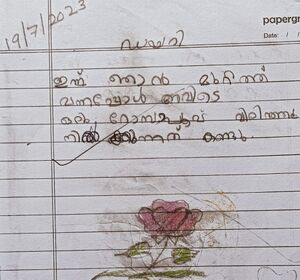 papergr
Date: / /
19/7/2023
ഡയറി
ഇന്ന് ഞാൻ മുറ്റത്ത്
വന്നപ്പോൾ അവിടെ
ഒരു റോസാപ്പൂവ് വിരിഞ്ഞു
നിൽക്കുന്നത് കണ്ടു.